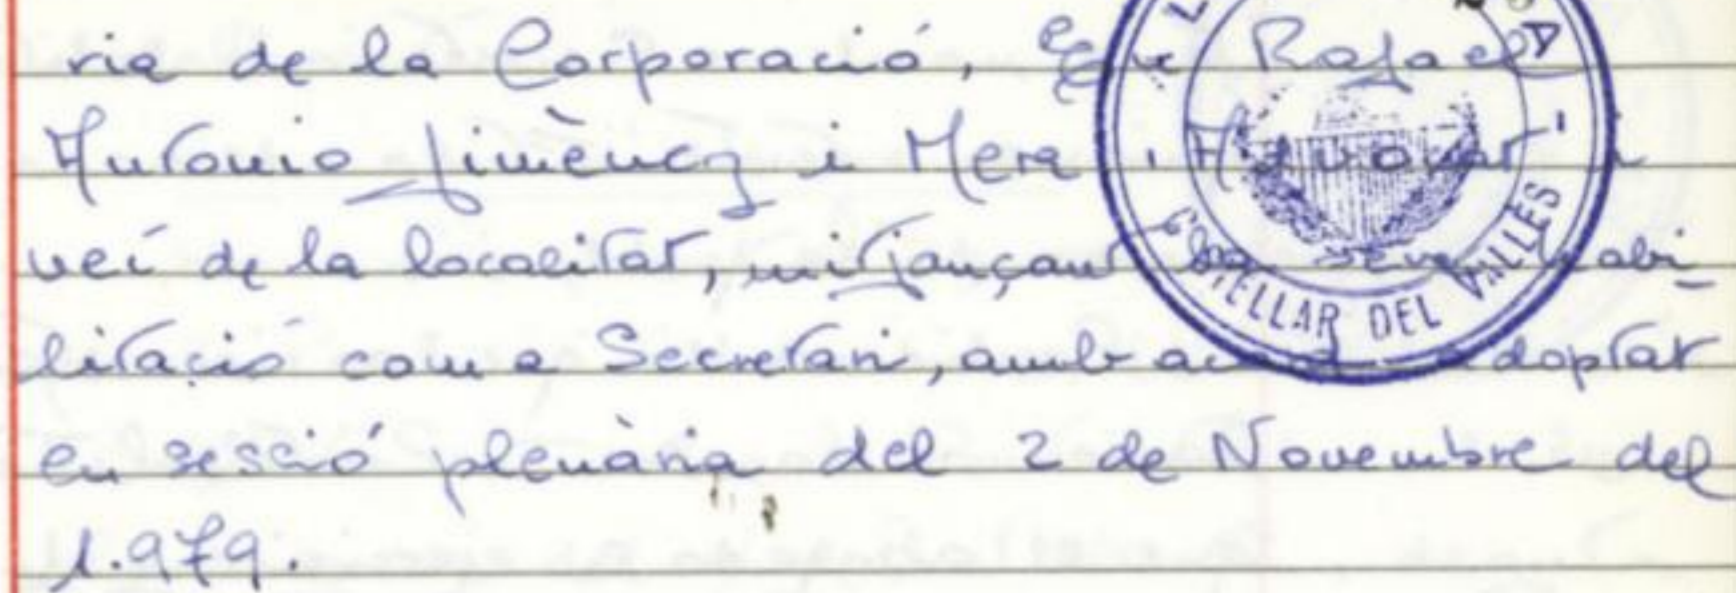 ria de la Corporació, en Rafael
Antonio Jimènez i Mera,
veí de la localitat, mitjançant la seva habi-
litació com a Secretari, amb acord adoptat
en sessió plenària del 2 de Novembre del
1.979.
CASTELLAR DEL VALLÈS